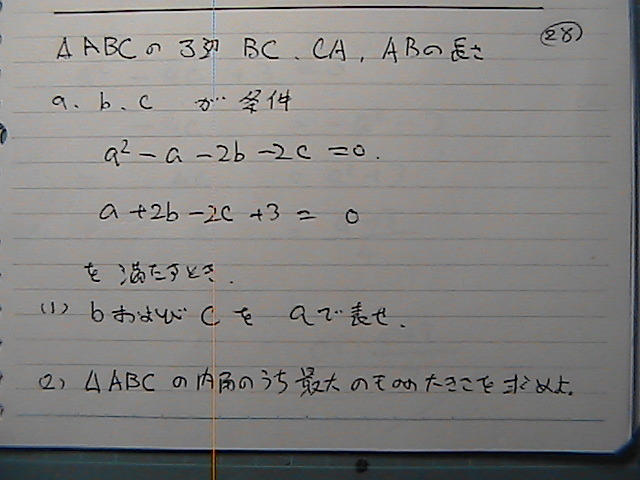 △ABCの3辺 BC、CA、ABの長さ ㉘
a、b、c が 条件
a² - a - 2b - 2c = 0.
a + 2b - 2c + 3 = 0
を満たすとき.
(1) bおよび c を aで表せ.
(2) △ABC の内角のうち最大のものの大きさを求めよ。